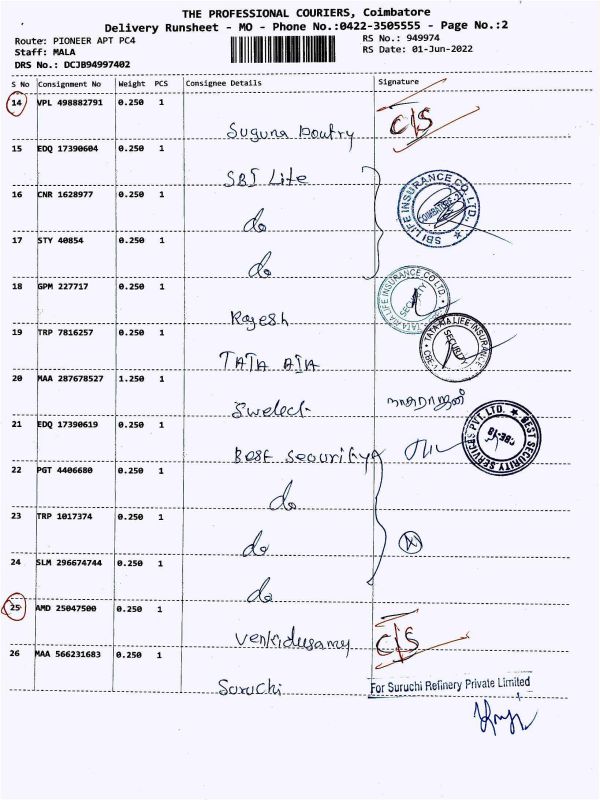 THE PROFESSIONAL COURIERS, Coimbatore
Delivery Runsheet - MO - Phone No.:0422-3505555 - Page No.:2
Route: PIONEER APT PC4
RS No.: 949974
Staff: MALA
RS Date: 01-Jun-2022
DRS No.: DCJB94997402
S No Consignment No Weight PCS Consignee Details Signature
14 VPL 498882791 0.250 1
Suguna C/S
15 EDQ 17390604 0.250 1
SBI Life
SBI LIFE INSURANCE CO. LTD.
16 CNR 1628977 0.250 1
do
17 STY 40854 0.250 1
do
18 GPM 227717 0.250 1
Rajesh
TATA AIA LIFE INSURANCE CO LTD.
SECURITY
19 TRP 7816257 0.250 1
TATA AIA
TATA-AIA LIFE INSURANCE
SECURITY
20 MAA 287678527 1.250 1
Swelect
21 EDQ 17390619 0.250 1
Best Security
BEST SECURITY SERVICES PVT. LTD.
CBE-18
22 PGT 4406680 0.250 1
do
23 TRP 1017374 0.250 1
do
24 SLM 296674744 0.250 1
do
25 AMD 25047500 0.250 1
Venkidusamy C/S
26 MAA 566231683 0.250 1
Suruchi
For Suruchi Refinery Private Limited